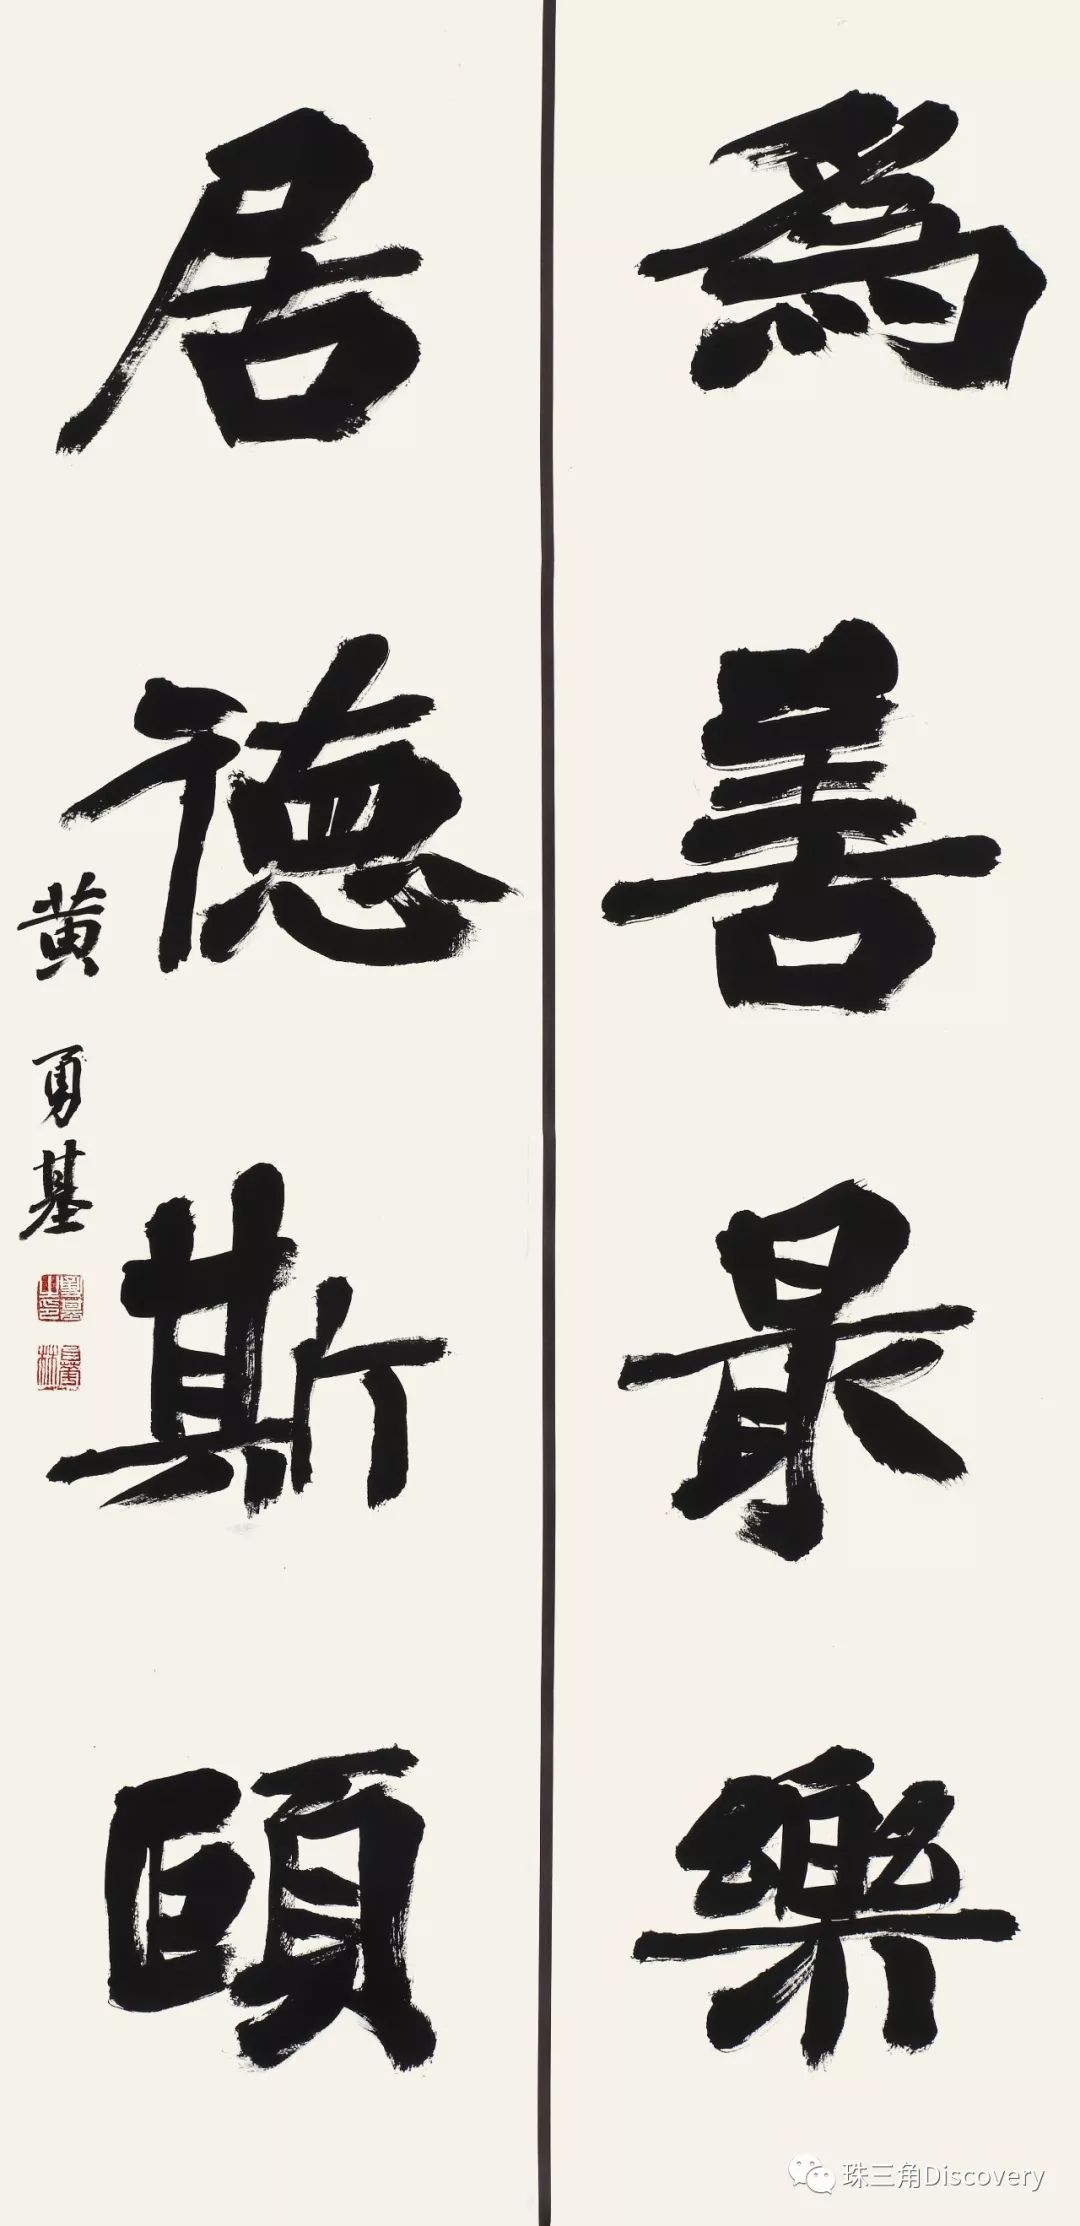 爲善最樂
居德斯頤
黄勇基
珠三角Discovery